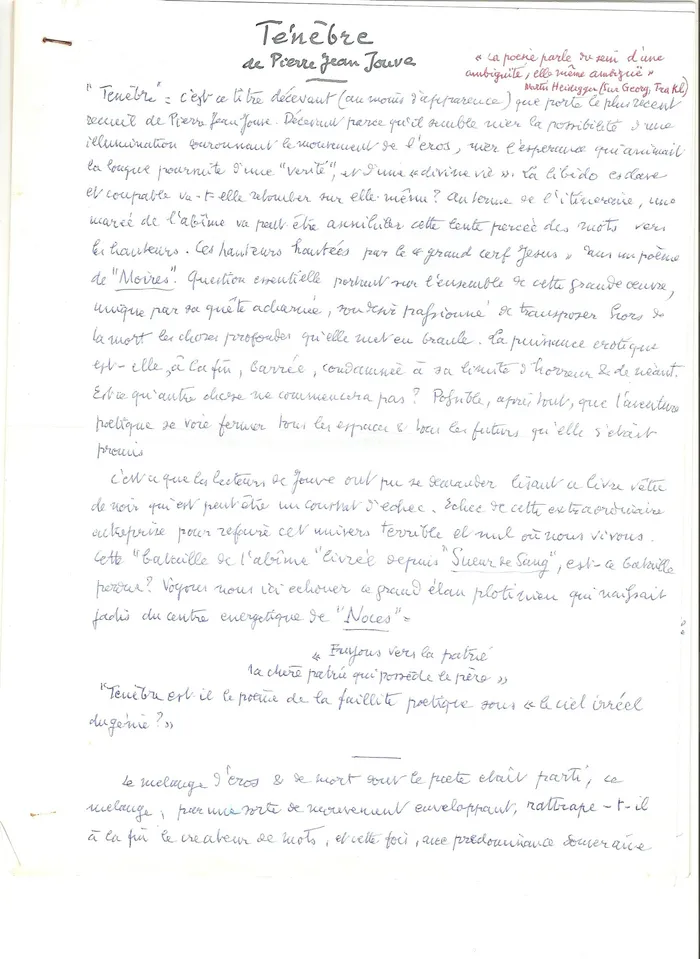 Ténèbre
de Pierre Jean Jouve
« La poésie parle du sein d'une
ambiguité, elle même ambiguë »
Martin Heidegger (sur Georg, Trakl)
"Ténèbre" = c'est ce titre décevant (au moins d'apparence) que porte le plus récent
recueil de Pierre Jean Jouve. Décevant parce qu'il semble nier la possibilité d'une
illumination couronnant le mouvement de l'eros, nier l'espérance qui animait
la longue poursuite d'une "verité", et d'une « divine vie ». La libido esclave
et coupable va-t-elle retomber sur elle même? Au terme de l'itineraire, une
marée de l'abîme va peut être annihiler cette lente percée des mots vers
les hauteurs. Ces hauteurs hantées par le « grand cerf Jesus » dans un poème
de "Moires". Question essentielle portant sur l'ensemble de cette grande œuvre,
unique par sa quête acharnée, son desir passionné de transposer hors de
la mort les choses profondes qu'elle met en branle. La puissance erotique
est-elle, à la fin, barrée, condamnée à sa limite d'horreur & de néant.
Est ce qu'autre chose ne commencera pas? Possible, après tout, que l'aventure
poétique se voie fermer tous les espaces & tous les futurs qu'elle s'était
promis
C'est ce que les lecteurs de Jouve ont pu se demander lisant ce livre vêtu
de noir qui est peut être un constat d'echec. Echec de cette extraordinaire
entreprise pour refaire cet univers terrible et nul où nous vivons.
Cette "bataille de l'abîme" livrée depuis "Sueur de Sang", est-ce bataille
perdue? Voyons nous ici echouer ce grand élan plotinien qui naissait
jadis du centre energetique de "Noces" =
« Fuyons vers la patrie
la chère patrie qui possède le père »
"Ténèbre est il le poème de la faillite poetique sous « le ciel irréel
du génie? »
Le melange d'éros & de mort dont le poete etait parti, ce
melange, par une sorte de mouvement enveloppant, rattrape-t-il
à la fin le createur de mots, et cette fois, avec predominance souveraine